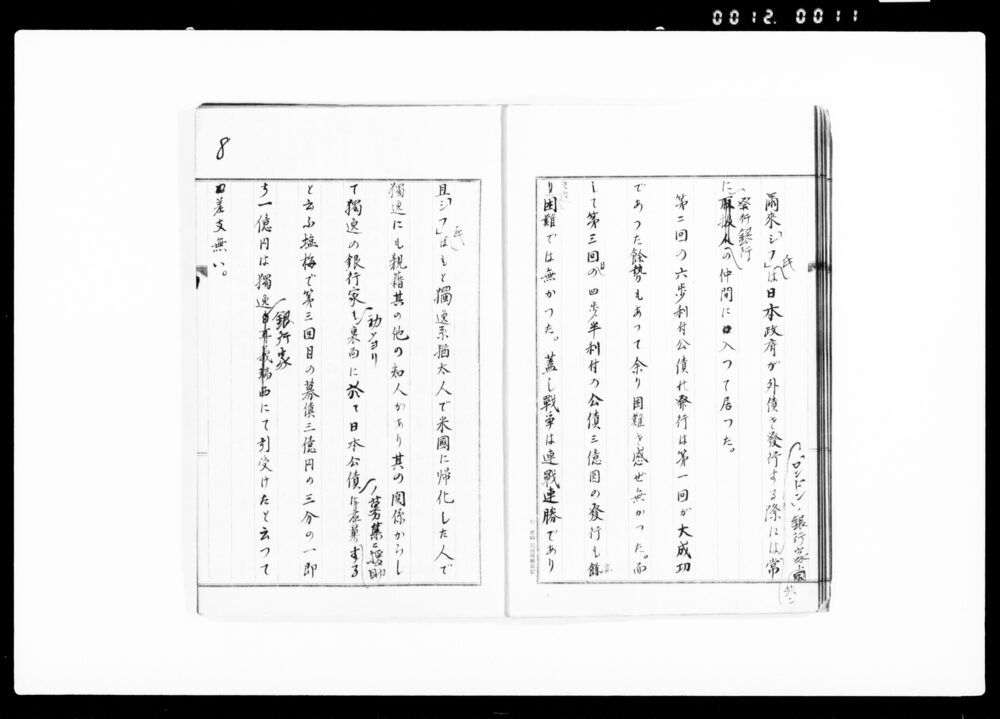 0012.0011
爾來「シフ」氏は日本政府が外債を發行する際には常
「ロンドン」銀行家
に發行銀行の仲間に入つて居つた。
第二回の六歩利付公債の發行は第一回が大成功
であつた餘勢もあつて余り困難を感ぜ無かつた。而
して第三回目の四歩半利付の公債三億圓の發行も餘
り困難では無かつた。蓋し戰争は連戰連勝であり
8
且「シフ」氏はもと獨逸系猶太人で米國に帰化した人で
獨逸にも親籍其の他の知人があり其の関係からし
て獨逸の銀行家も裏面に於て日本公債ノ募集ニ援助する
と云ふ塩梅で第三回目の募債三億円の三分の一即
ち一億円は獨逸銀行家にて引受けたと云つて
差支無い。